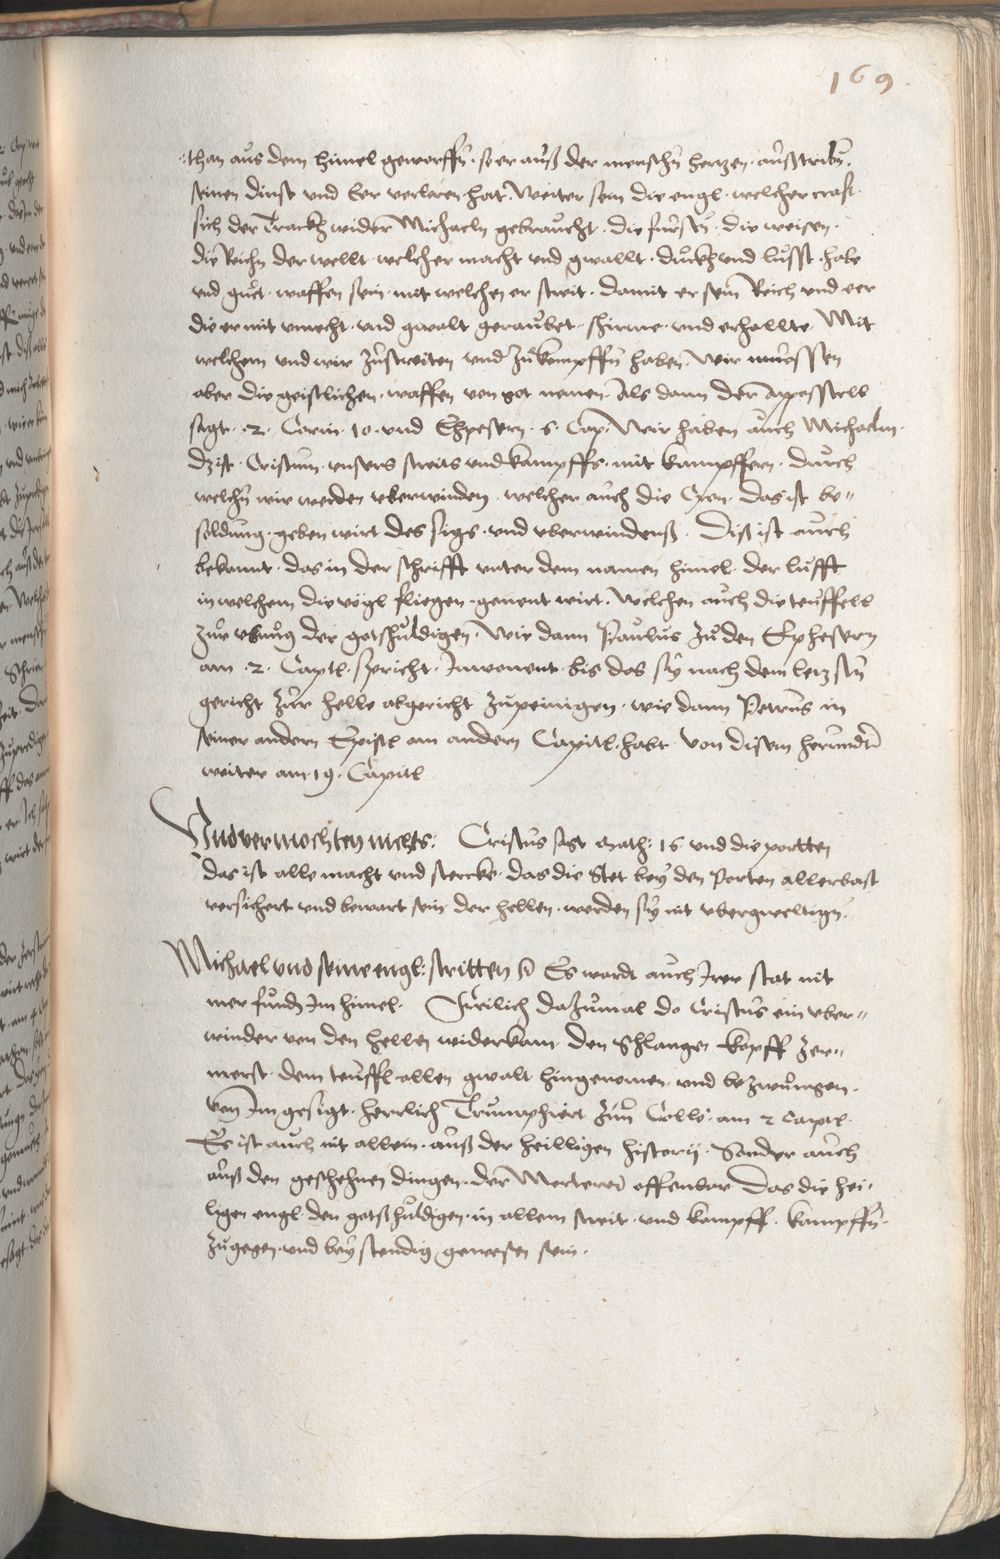 169
than aus dem himel geworffn̄. so er auß der menschn̄ hertzen. außtribn̄.
seinen dinst und ler verloren hat. Weiter sein die engl. welcher craft
sich der Trackh wider Michaeln gebraucht. die furstn̄. die weisen.
die Reichn der wellt. welcher macht und gwallt. duckh und lusst. habe
und guet. waffen sein. mit welchen er streit. damit er sein Reich und eer
die er mit unrecht. und gwalt geraubet. schirme. und erhallte. Mit
welchem und wir zustreiten und zukempffn̄ haben. Wir muessen
aber die geistlichen. waffen von got nemen. Als dann der Appossttell
sagt. 2. Corin. 10. und Ephesern. 6. Cap. Wir haben auch Michaeln.
dz ist. Cristum. unsers streits und kampffs. mit kempffern. durch
welchn̄ wir werden uberwinden. welcher auch die Cron. das ist be„
soldung. geben wirt des sigs. und uberwindenß. Diß ist auch
bekannt. das in der schrifft unter dem namen himel. der lufft
in welchem die vögl fliegen. genent wirt. Welchen auch die teuffell
zur ubung der gotshuldigen. Wie dann Paulus zu den Ephesern
am 2. Captl. spricht. Inwonent. bis das sy nach dem letzstn̄
gericht zur helle abgericht zupeinigen. wie dann Petrus in
seiner andern Epistl am andern Capitl. habt. von disem herundn̄
weiter am 19. Capitl
Und vermochten nichts: Cristus sagt Math: 16 und die portten
das ist alle macht und stercke. das die Stet bey den Porten allerbast
versichert und bewart sein der hellen. werden sy nit ubergweltign̄.
Michael und seine engl: stritten Es ward auch Irer stat nit
mer fundn̄ Im himel. Freilich dazumal do Cristus ein uber„
winder von den hellen widerkam. den Schlangen kopff zer„
merst. dem teuffl allen gwalt hingenomen. und bezwungen.
von Im gesigt. herrlich Trumphiert zun Colle: am 2 Captl.
Es ist auch nit allein. auß der heilligen history. Sonder auch
auß den geschehnen dingen. der Merterer offenbar. Das die hei„
ligen engl. den gotshuldigen. in allem streit. und kampff. kempffn̄.
zugegen. und beystendig gewesen sein.